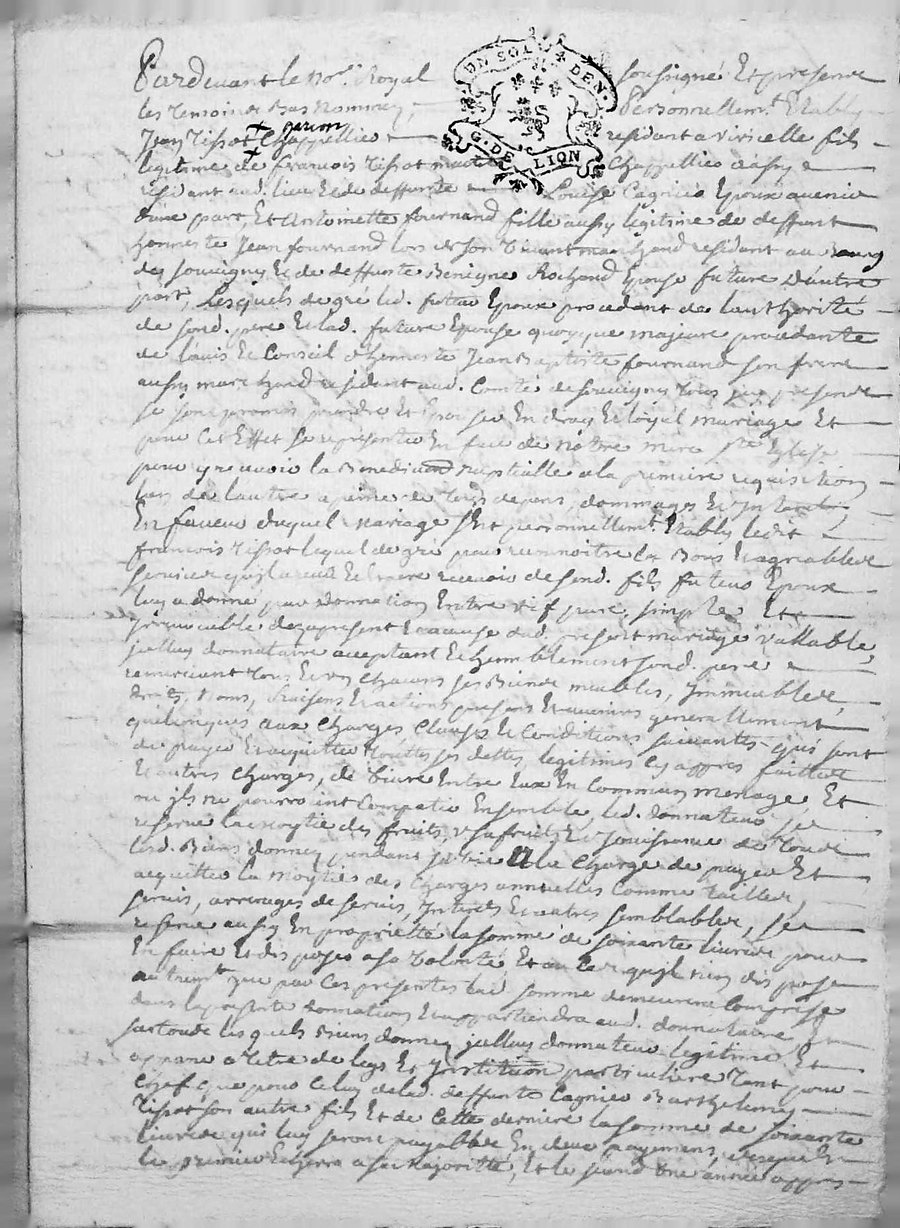 UN SOL 4 DEN.
G. DE LION
Pardevant le No.re Royal soussigné Et presence
les Temoins Bas Nommez, Personnellemt. Etably
Jean Tissot + garçon Chappellier residant a viricelle fils
legitime de françois Tissot Chappellier aussy
residant aud. lieu Et de deffunte Louise Cagnier Epoux avenir
dune part, Et Antoinette fournand fille aussy legitime de deffunt
honneste Jean fournand lors de son vivant marchand residant au Bourg
de souvigny Et de deffunte Benigne Rochand Epouse future Dautre
part, Lesquels de gré led. futur Epoux procedant de lauthorité
de sond. pere Et lad. future Epouse quoyque majeure procedante
de l'avis Et Conseil d'honneste Jean Baptiste fournand son frere
aussy marchand residant aud. Comté de souvigny Tous icy presents
se sont promis prendre Et Epouser En vray Et loyal mariage Et
pour Cet Effet se representer En face de Nôtre mere Ste Eglise
pour y recevoir la Benediction nuptialle a la premiere requisition
lun de lautre a peines de Tous depens, dommages Et Interests
En faveur duquel Mariage s'est personnellemt. Etably ledit
françois Tissot lequel de gré pour reconnoitre les Bons Et agreables
services qu'il a reçu Et Espere recevoir de sond. fils futur Epoux
luy a donné par Donnation Entre vif pure, simple Et
jrrevocable dez apresent Et acause dud. present mariage vallable,
jcelluy donnataire acceptant Et humblement sond. pere
remerciant Tous Et un chacuns ses Biens meubles, Jmmeubles,
droits, Noms, Raisons Et actions presents Et avenirs generallement
quelconques aux Charges Clauses Et Conditions suivantes qui sont
de payer Et acquitter Toutes ses dettes legitimes Cy appres faittes
Et autres Charges, de Vivre Entre Eux En Commun menage Et
ou ils ne pourroient Compatir Ensemble, led. donnateur se
reserve la moytié des fruits, usufruits Et Jouissance de Tous
lesd. Biens donnez pendant sa vie a la Charge de payer Et
acquitter la moytiés des Charges annuelles Comme Tailles,
servis, arrerages de servis, Interets Et autres semblables, se
reserve aussy En proprietté la somme de soixante livres pour
En faire Et disposer a sa Volonté, Et au Cas qu'il n'en dispose
autremt. que par Ces presentes lad. somme demeurera Comprise
dans la presente donnation Et appartiendra aud. donnataire
sur Tous lesquels Biens donnez jcelluy donnateur legitime Et
appane a Titre de legs Et Institution particuliere Tant pour
Chef que pour Celuy de lad. deffunte Cagnier Barthelemy
Tissot son autre fils Et de Cette derniere la somme de soixante
livres qui luy seront payables En deux payemens,
le premier Echerra a sa Majorité, Et le second une année appres